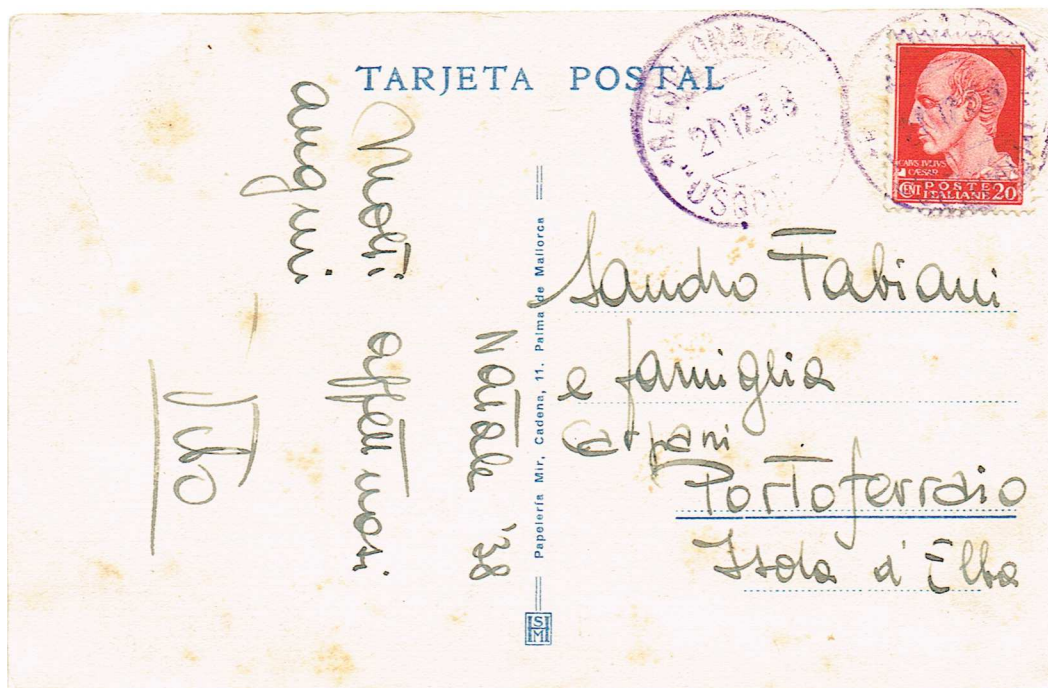 TARJETA POSTAL
20.12.38
CAIVS IVLIVS
CAESAR
CENT POSTE ITALIANE 20
Natale '38
Molti affettuosi
auguri
Papelería Mir, Cadena, 11. Palma de Mallorca
Sandro Fabiani
e famiglia
Carpani
Portoferraio
Isola d'Elba